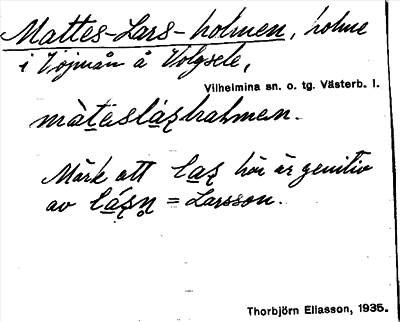 Mattes-Lars-holmen, holme
i Vojmån å Volgsele,
Vilhelmina sn. o. tg. Västerb. l.
màtesláshalmen.
Märk att las här är genitiv
av lásn = Larsson.
Thorbjörn Eliasson, 1935.